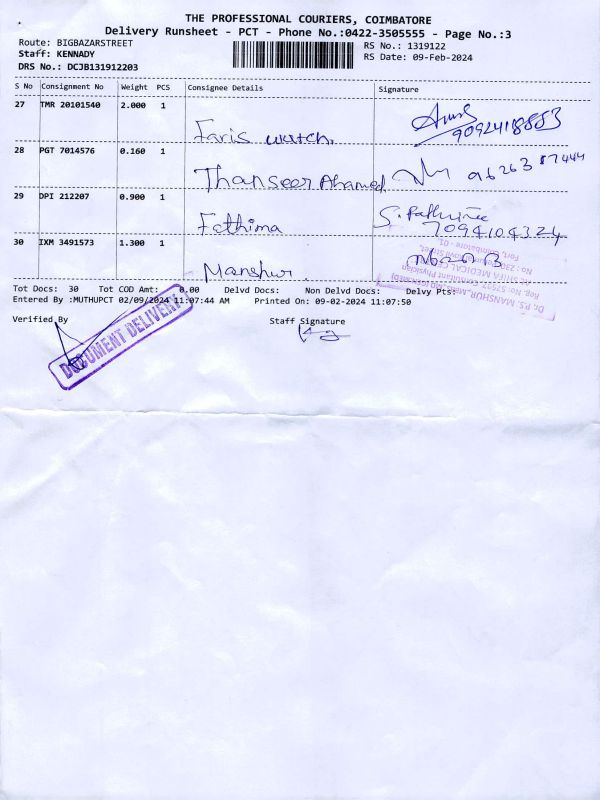 THE PROFESSIONAL COURIERS, COIMBATORE
Delivery Runsheet - PCT - Phone No.:0422-3505555 - Page No.:3
Route: BIGBAZARSTREET
RS No.: 1319122
Staff: KENNADY
RS Date: 09-Feb-2024
DRS No.: DCJB131912203
S No Consignment No Weight PCS Consignee Details Signature
27 TMR 20101540 2.000 1
Faris watch. 9092418853
28 PGT 7014576 0.160 1
Thanseer Ahamed 96263 87444
29 DPI 212207 0.900 1
S. Fathima
Fathima 7094104324
30 IXM 3491573 1.300 1
Manshur.
Dr. PS. MANSHUR, MBBS.,
Reg. No: Consultant Physician
AL SHIFA MEDICAL
Fort, Coimbatore - 01.
Tot Docs: 30 Tot COD Amt: 0.00 Delvd Docs: Non Delvd Docs: Delvy Pts:
Entered By :MUTHUPCT 02/09/2024 11:07:44 AM Printed On: 09-02-2024 11:07:50
Verified By Staff Signature
DOCUMENT DELIVERY